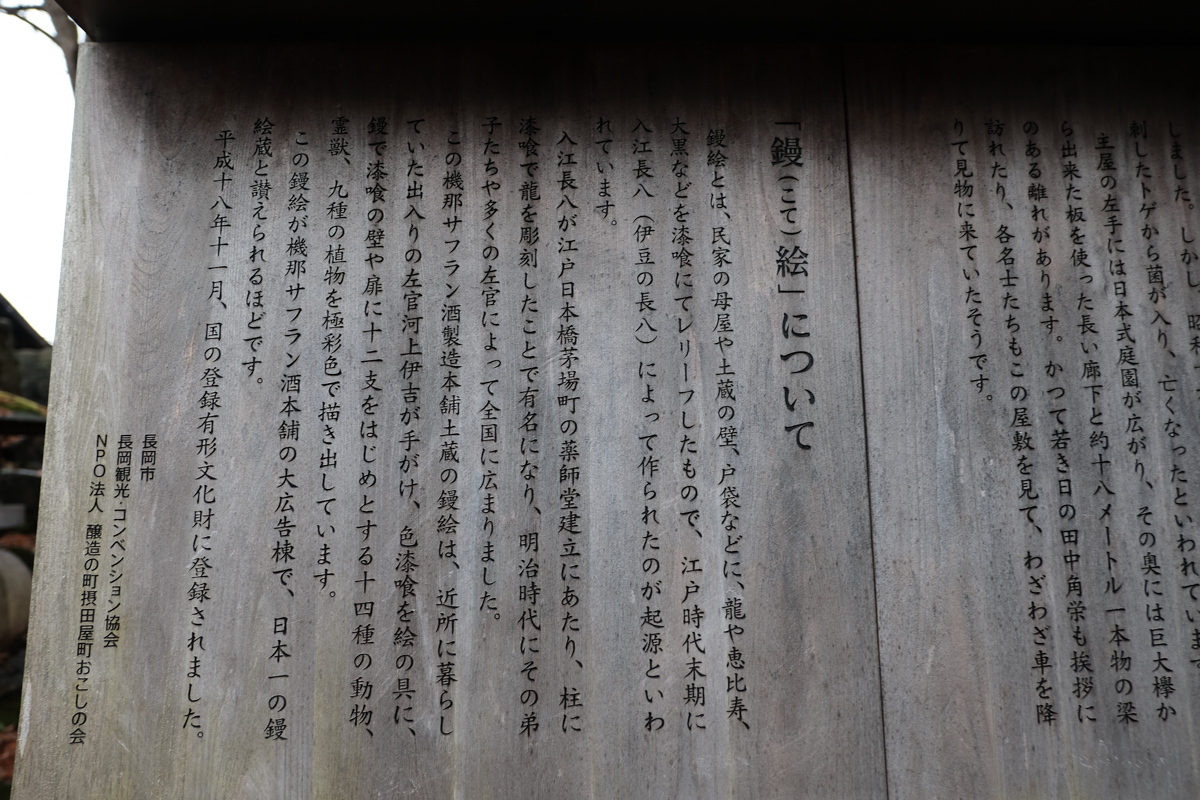 しました。しかし、昭和
刺したトゲから菌が入り、亡くなったといわれています
主屋の左手には日本式庭園が広がり、その奥には巨大欅か
ら出来た板を使った長い廊下と約十八メートル一本物の梁
のある離れがあります。かつて若き日の田中角栄も挨拶に
訪れたり、各名士たちもこの屋敷を見て、わざわざ車を降
りて見物に来ていたそうです。
「鏝(こて)絵」について
鏝絵とは、民家の母屋や土蔵の壁、戸袋などに、龍や恵比寿、
大黒などを漆喰にてレリーフしたもので、江戸時代末期に
入江長八(伊豆の長八)によって作られたのが起源といわ
れています。
入江長八が江戸日本橋茅場町の薬師堂建立にあたり、柱に
漆喰で龍を彫刻したことで有名になり、明治時代にその弟
子たちや多くの左官によって全国に広まりました。
この機那サフラン酒製造本舗土蔵の鏝絵は、近所に暮らし
ていた出入りの左官河上伊吉が手がけ、色漆喰を絵の具に、
鏝で漆喰の壁や扉に十二支をはじめとする十四種の動物、
霊獣、九種の植物を極彩色で描き出しています。
この鏝絵が機那サフラン酒本舗の大広告棟で、日本一の鏝
絵蔵と讃えられるほどです。
平成十八年十一月、国の登録有形文化財に登録されました。
長岡市
長岡観光・コンベンション協会
NPO法人 醸造の町摂田屋町おこしの会